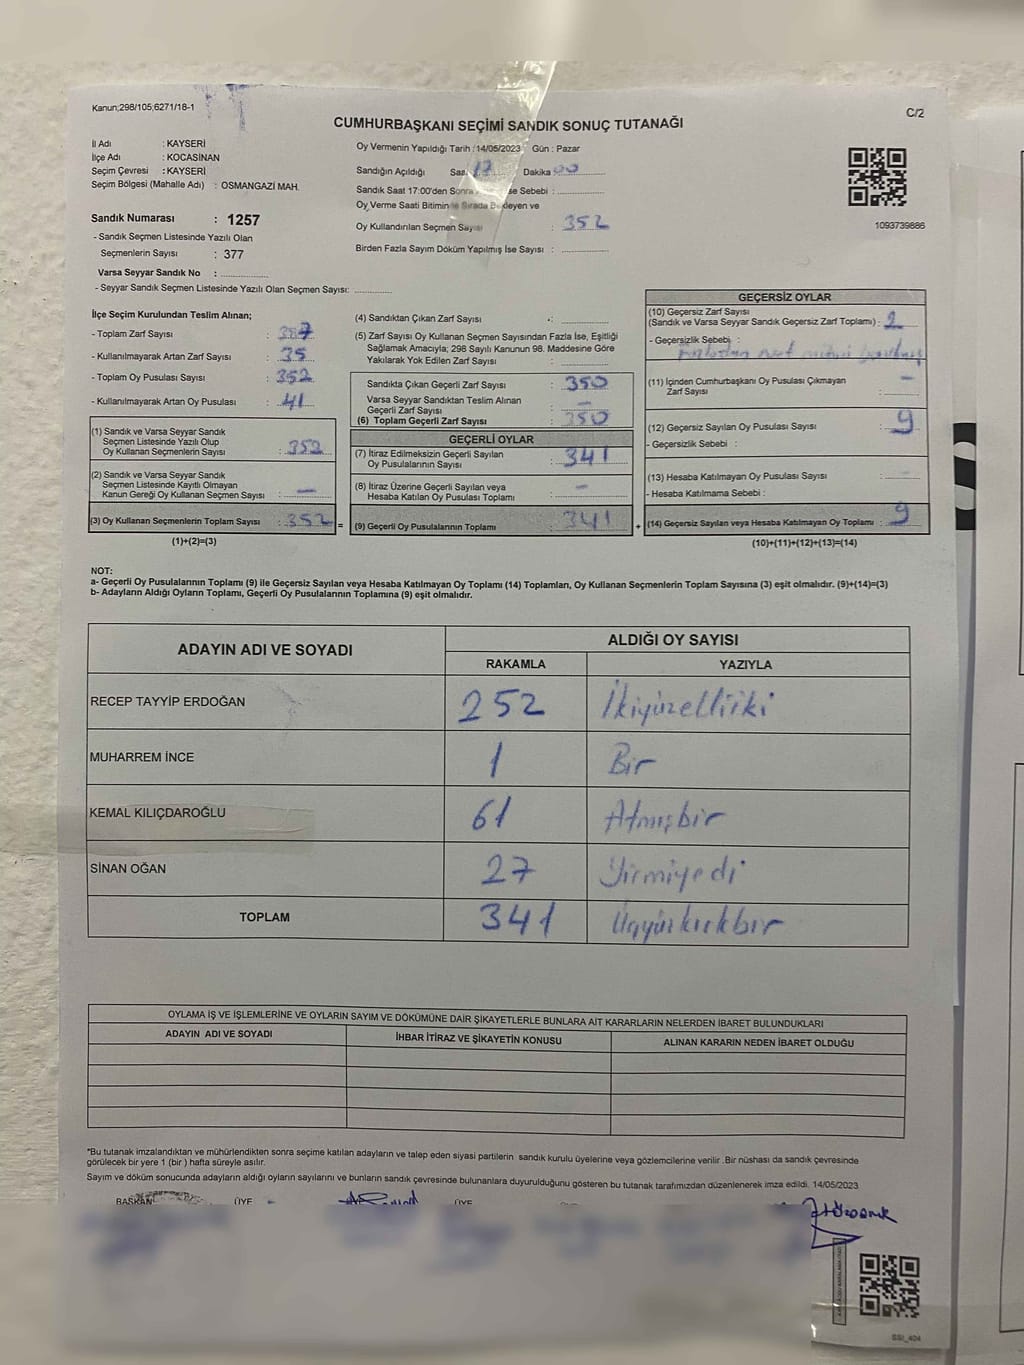 Kanun;298/105,6271/18-1
C/2
CUMHURBAŞKANI SEÇİMİ SANDIK SONUÇ TUTANAĞI
İl Adı : KAYSERİ
İlçe Adı : KOCASİNAN
Seçim Çevresi : KAYSERİ
Seçim Bölgesi (Mahalle Adı) : OSMANGAZİ MAH.
Sandık Numarası : 1257
- Sandık Seçmen Listesinde Yazılı Olan
Seçmenlerin Sayısı : 377
Varsa Seyyar Sandık No :
- Seyyar Sandık Seçmen Listesinde Yazılı Olan Seçmen Sayısı:
Oy Vermenin Yapıldığı Tarih :14/05/2023 Gün : Pazar
Sandığın Açıldığı Saat 17 Dakika 00
Sandık Saat 17:00'den Sonra ise Sebebi :
Oy Verme Saati Bitiminde Sırada Bekleyen ve
Oy Kullandırılan Seçmen Sayısı : 352
Birden Fazla Sayım Döküm Yapılmış İse Sayısı :
1093739886
İlçe Seçim Kurulundan Teslim Alınan;
- Toplam Zarf Sayısı : 387
- Kullanılmayarak Artan Zarf Sayısı : 35
- Toplam Oy Pusulası Sayısı : 352
- Kullanılmayarak Artan Oy Pusulası : 41
(1) Sandık ve Varsa Seyyar Sandık
Seçmen Listesinde Yazılı Olup
Oy Kullanan Seçmenlerin Sayısı : 352
(2) Sandık ve Varsa Seyyar Sandık
Seçmen Listesinde Kayıtlı Olmayan
Kanun Gereği Oy Kullanan Seçmen Sayısı : —
(3) Oy Kullanan Seçmenlerin Toplam Sayısı : 352 =
(1)+(2)=(3)
(4) Sandıktan Çıkan Zarf Sayısı :
(5) Zarf Sayısı Oy Kullanan Seçmen Sayısından Fazla İse, Eşitliği
Sağlamak Amacıyla; 298 Sayılı Kanunun 98. Maddesine Göre
Yakılarak Yok Edilen Zarf Sayısı :
Sandıkta Çıkan Geçerli Zarf Sayısı : 350
Varsa Seyyar Sandıktan Teslim Alınan
Geçerli Zarf Sayısı : —
(6) Toplam Geçerli Zarf Sayısı : 350
GEÇERLİ OYLAR
(7) İtiraz Edilmeksizin Geçerli Sayılan
Oy Pusulalarının Sayısı : 341
(8) İtiraz Üzerine Geçerli Sayılan veya
Hesaba Katılan Oy Pusulası Toplamı : —
(9) Geçerli Oy Pusulalarının Toplamı : 341 +
GEÇERSİZ OYLAR
(10) Geçersiz Zarf Sayısı
(Sandık ve Varsa Seyyar Sandık Geçersiz Zarf Toplamı) : 2
- Geçersizlik Sebebi :
(11) İçinden Cumhurbaşkanı Oy Pusulası Çıkmayan
Zarf Sayısı : —
(12) Geçersiz Sayılan Oy Pusulası Sayısı : 9
- Geçersizlik Sebebi :
(13) Hesaba Katılmayan Oy Pusulası Sayısı :
- Hesaba Katılmama Sebebi :
(14) Geçersiz Sayılan veya Hesaba Katılmayan Oy Toplamı : 9
(10)+(11)+(12)+(13)=(14)
NOT:
a- Geçerli Oy Pusulalarının Toplamı (9) ile Geçersiz Sayılan veya Hesaba Katılmayan Oy Toplamı (14) Toplamları, Oy Kullanan Seçmenlerin Toplam Sayısına (3) eşit olmalıdır. (9)+(14)=(3)
b- Adayların Aldığı Oyların Toplamı, Geçerli Oy Pusulalarının Toplamına (9) eşit olmalıdır.
ADAYIN ADI VE SOYADI ALDIĞI OY SAYISI
RAKAMLA YAZIYLA
RECEP TAYYİP ERDOĞAN 252 İkiyüzelliiki
MUHARREM İNCE 1 Bir
KEMAL KILIÇDAROĞLU 61 Atmışbir
SİNAN OĞAN 27 Yirmiyedi
TOPLAM 341 Üçyüzkırkbir
OYLAMA İŞ VE İŞLEMLERİNE VE OYLARIN SAYIM VE DÖKÜMÜNE DAİR ŞİKAYETLERLE BUNLARA AİT KARARLARIN NELERDEN İBARET BULUNDUKLARI
ADAYIN ADI VE SOYADI İHBAR İTİRAZ VE ŞİKAYETİN KONUSU ALINAN KARARIN NEDEN İBARET OLDUĞU
*Bu tutanak imzalandıktan ve mühürlendikten sonra seçime katılan adayların ve talep eden siyasi partilerin sandık kurulu üyelerine veya gözlemcilerine verilir .Bir nüshası da sandık çevresinde
görülecek bir yere 1 (bir ) hafta süreyle asılır.
Sayım ve döküm sonucunda adayların aldığı oyların sayılarını ve bunların sandık çevresinde bulunanlara duyurulduğunu gösteren bu tutanak tarafımızdan düzenlenerek imza edildi. 14/05/2023
BAŞKAN ÜYE ÜYE
SSI_404